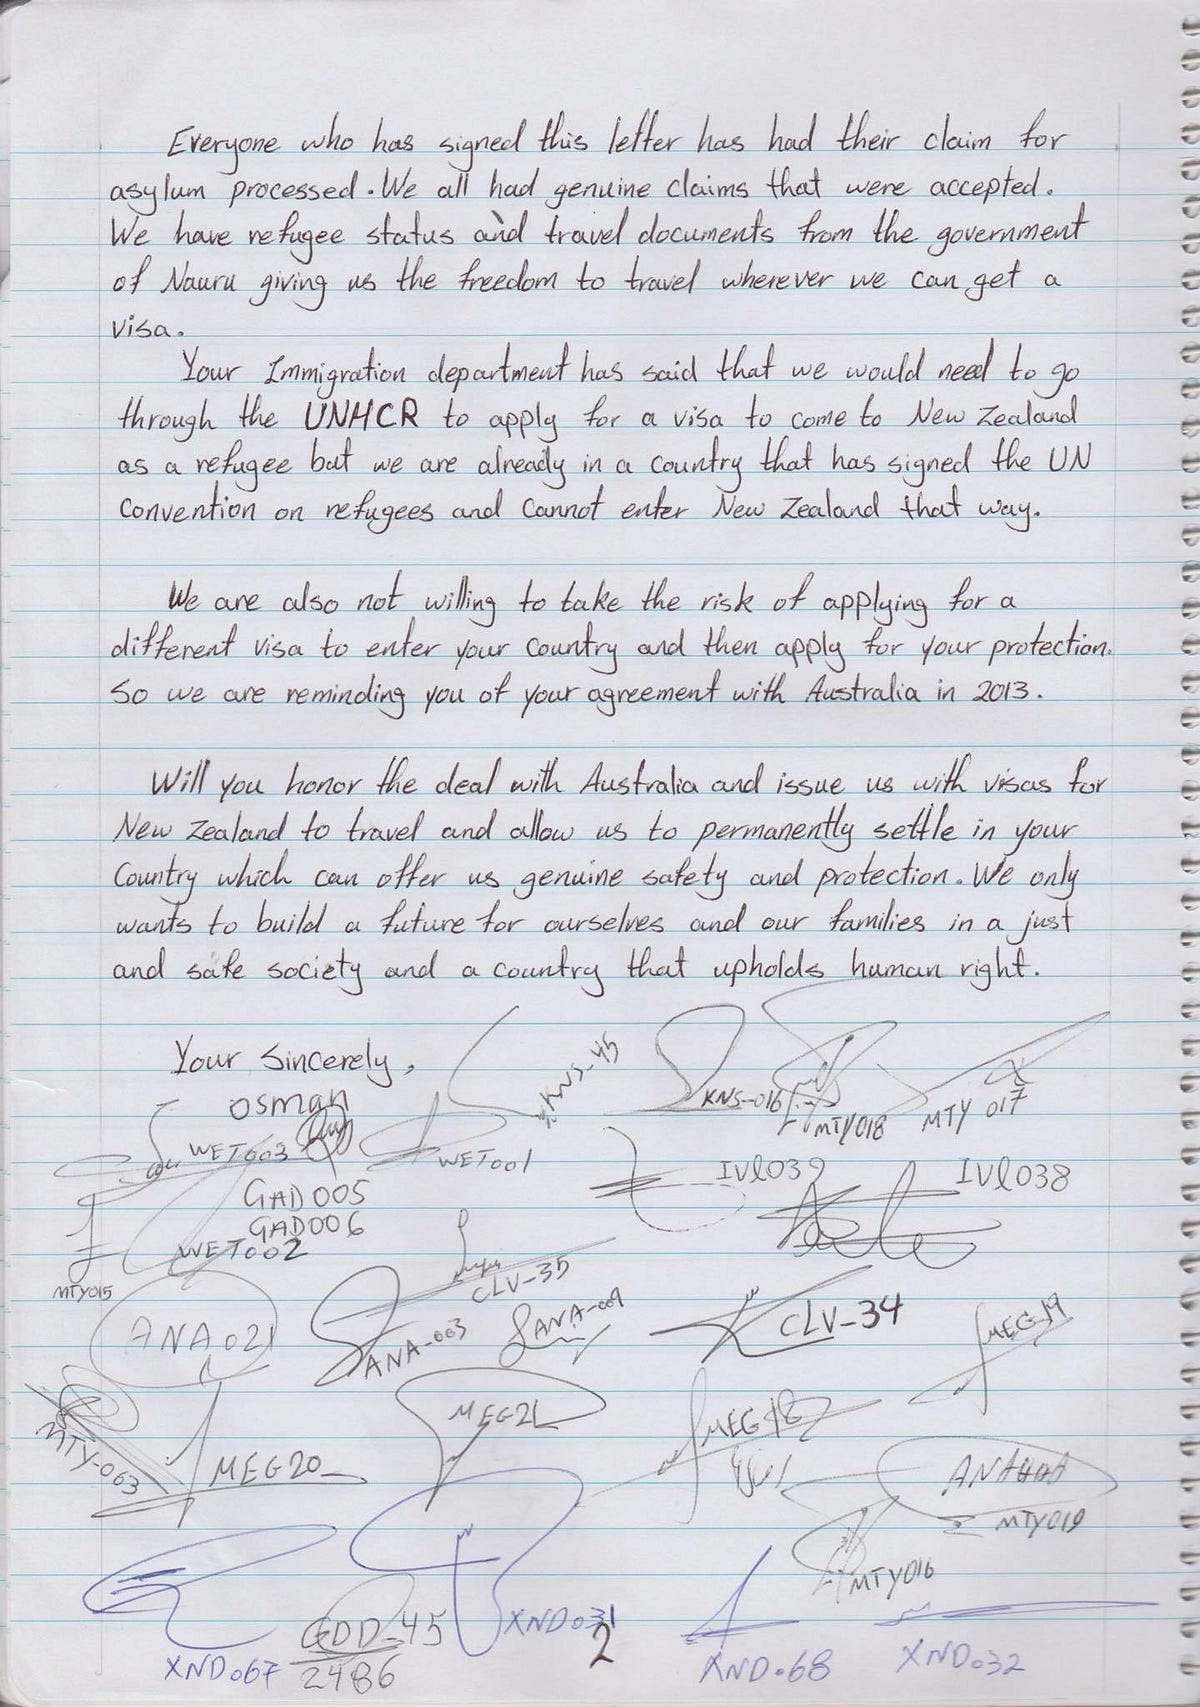 Everyone who has signed this letter has had their claim for
asylum processed. We all had genuine claims that were accepted.
We have refugee status and travel documents from the government
of Nauru giving us the freedom to travel wherever we can get a
visa.
Your Immigration department has said that we would need to go
through the UNHCR to apply for a visa to come to New Zealand
as a refugee but we are already in a country that has signed the UN
Convention on refugees and cannot enter New Zealand that way.
We are also not willing to take the risk of applying for a
different visa to enter your country and then apply for your protection.
So we are reminding you of your agreement with Australia in 2013.
Will you honor the deal with Australia and issue us with visas for
New Zealand to travel and allow us to permanently settle in your
Country which can offer us genuine safety and protection. We only
wants to build a future for ourselves and our families in a just
and safe society and a country that upholds human right.
Your Sincerely,
KNS-45
osman
KNS-016
MTY018
MTY 017
WET003
WET001
IVL039
IVL038
GAD005
GAD006
WET002
MTY015
CLV-35
ANA021
ANA-003
ANA-009
CLV-34
MEG-19
MTY-063
MEG20
MEG21
MEG18
MTY019
MTY016
XND067
GDD-45
2486
XND031
2
XND.68
XND.032